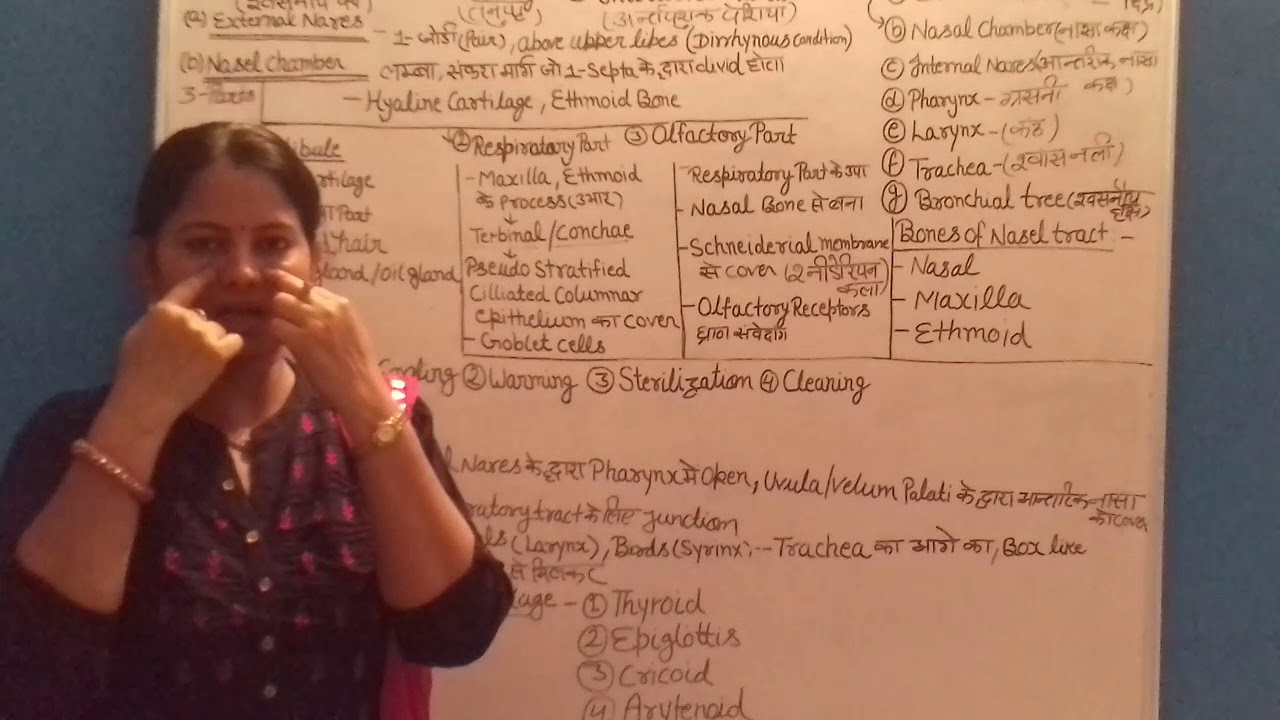 (श्वसनीय पथ)
(तनुपट) (अन्तरापर्शुक पेशियाँ)
(a) External Nares - 1-जोडी (Pair), above upper libes (Dirrhynous condition)
(b) Nasel chamber लम्बा, संकरा मार्ग जो 1-Septa के द्वारा divid होता
3-Parts - Hyaline Cartilage, Ethmoid Bone
ibule
rtilage
Part
hair
gland/Oil gland
② Respiratory Part
- Maxilla, Ethmoid
के Process (उभार)
↓
Terbinal/Conchae
↓
Pseudo Stratified
Cilliated Columnar
epithelium का cover
- Goblet cells
③ Olfactory Part
- Respiratory Part के
- Nasal Bone से बना
- Schneiderial membrane
से cover (श्नीडेरियन
कला)
- Olfactory Receptors
घ्राण संवेदांग
(b) Nasal Chamber (नासा कक्ष)
(c) Internal Nares (आन्तरिक नासा
कक्ष)
(d) Pharynx - ग्रसनी
(e) Larynx - (कंठ)
(f) Trachea - (श्वास नली)
(g) Bronchial tree (श्वसनीय
वृक्ष)
Bones of Nasel tract :-
- Nasal
- Maxilla
- Ethmoid
② Warming ③ Sterilization ④ Cleaning
Nares के द्वारा Pharynx मे Open, Uvula/Velum Palati के द्वारा आन्तरिक नासा
को cover
ratory tract के लिए Junction
ls (Larynx), Birds (Syrinx) :-- Trachea का आगे का, Box like
से मिलकर
lage - ① Thyroid
② Epiglottis
③ Cricoid
④ Arytenoid